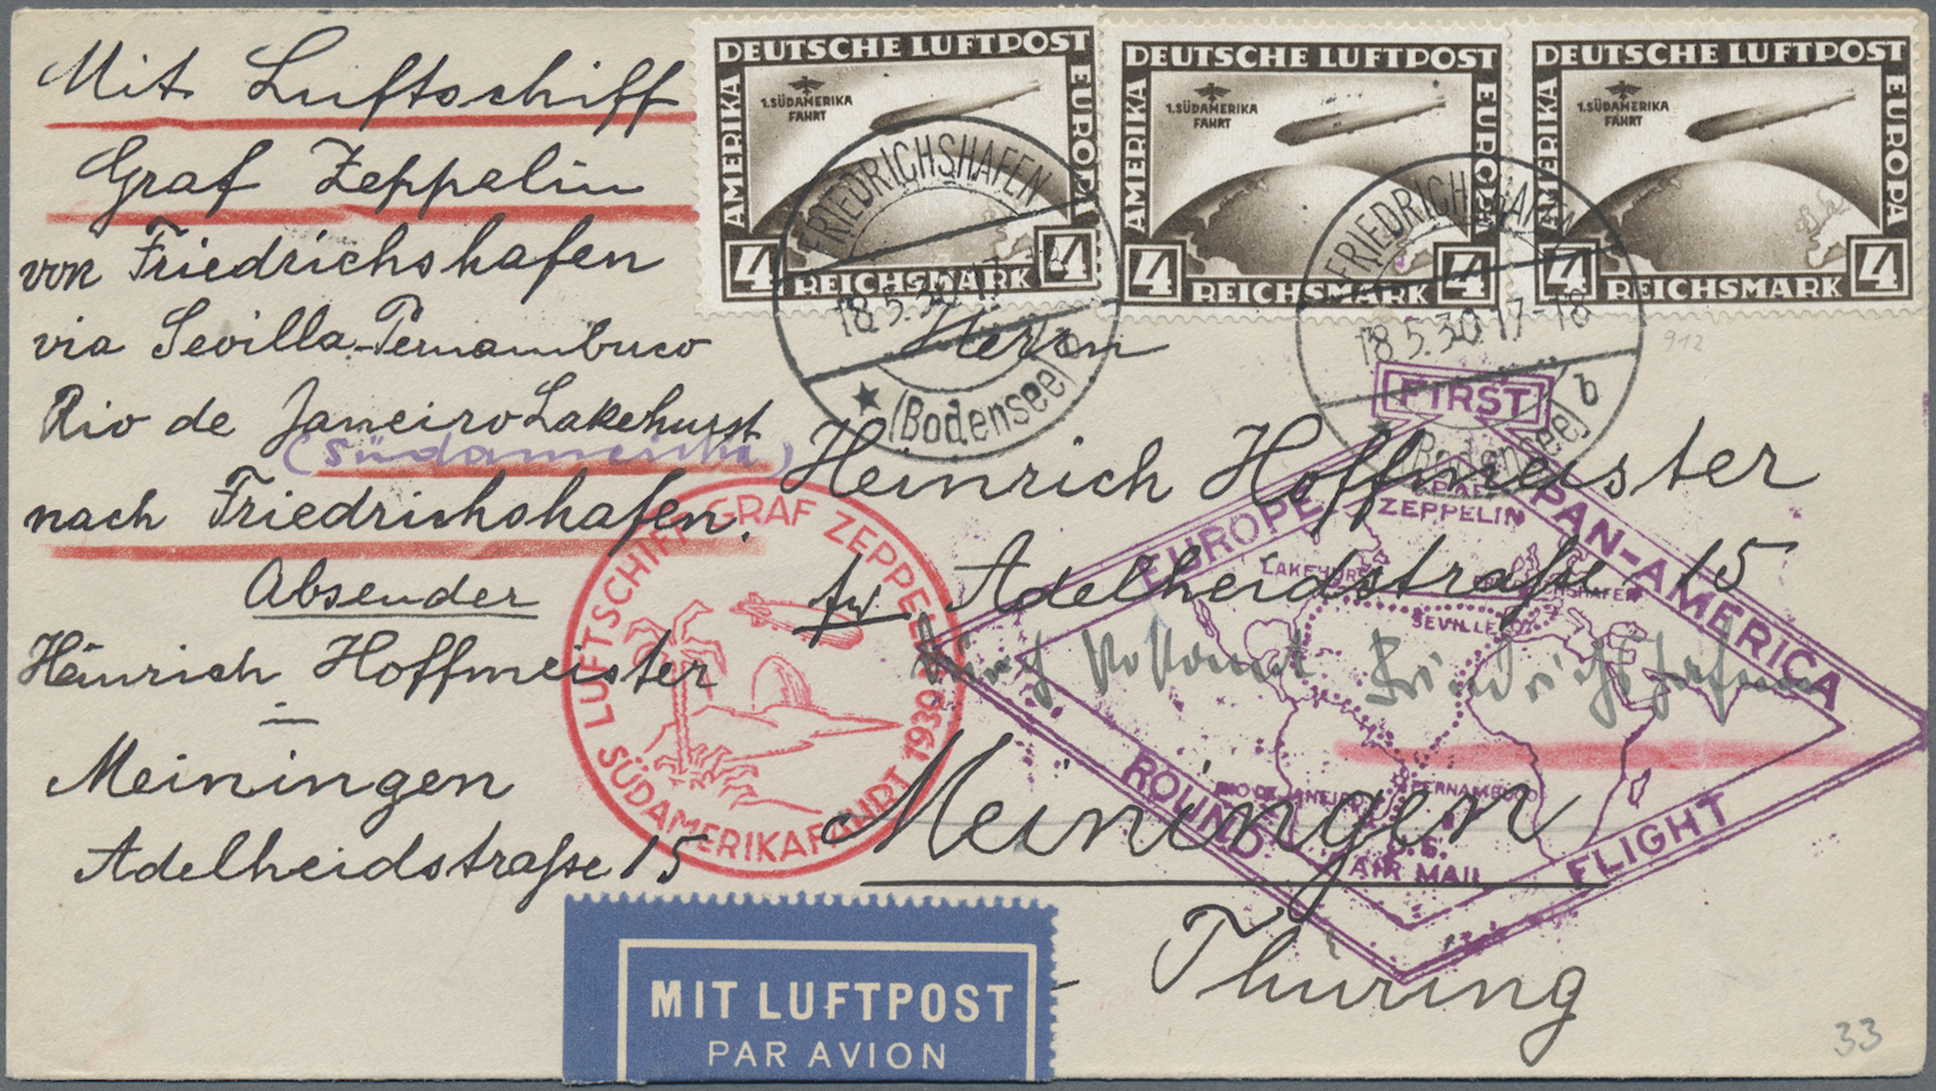 Mit Luftschiff
Graf Zeppelin
von Friedrichshafen
via Sevilla-Pernambuco
Rio de Janeiro Lakehurst
(Südamerika)
nach Friedrichshafen.
Absender
Heinrich Hoffmeister
Meiningen
Adelheidstraße 15
DEUTSCHE LUFTPOST
AMERIKA
EUROPA
1.SÜDAMERIKA
FAHRT
4 REICHSMARK 4
DEUTSCHE LUFTPOST
AMERIKA
EUROPA
1.SÜDAMERIKA
FAHRT
4 REICHSMARK 4
DEUTSCHE LUFTPOST
AMERIKA
EUROPA
1.SÜDAMERIKA
FAHRT
4 REICHSMARK 4
FRIEDRICHSHAFEN
18.5.30.17-18
(Bodensee)
FRIEDRICHSHAFEN
18.5.30.17-18
(Bodensee) b
912
Herrn
Heinrich Hoffmeister
Adelheidstraße 15
Friedrichshafen
Meiningen
Thüring
LUFTSCHIFF GRAF ZEPPELIN
SÜDAMERIKAFAHRT 1930
FIRST
EUROPE
PAN-AMERICA
ROUND
FLIGHT
GRAF
ZEPPELIN
LAKEHURST
FRIEDRICHSHAFEN
SEVILLE
RIO DE JANEIRO
PERNAMBUCO
U.S.
AIR MAIL
MIT LUFTPOST
PAR AVION
33